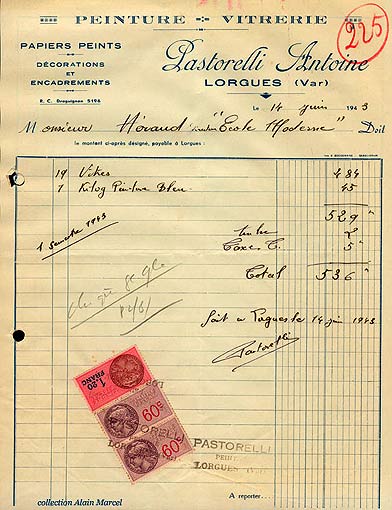 PEINTURE - VITRERIE
225
PAPIERS PEINTS
DÉCORATIONS
ET
ENCADREMENTS
R. C. Draguignan 5196
Pastorelli Antoine
LORGUES (Var)
Le 14 juin 1943
Monsieur Héraud "École Moderne" Doit
le montant ci-après désigné, payable à Lorgues :
19 Vitres 484
1 Kilog Peinture Bleu 45
529
1 Semestre 1943
timbre 2
Taxe 5
Total 536
Fait à Lorgues le 14 juin 1943
Pastorelli
1,20 FRANC
60c
60c
PASTORELLI
PEINT
LORGUES (Var)
A reporter
collection Alain Marcel